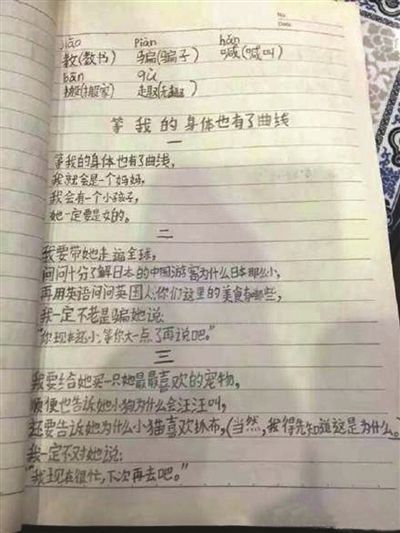 No.
Date
jiāo piàn hǎn
教(教书) 骗(骗子) 喊(喊叫)
bān qù
搬(搬家) 趣(无趣)
等我的身体也有了曲线
一
等我的身体也有了曲线,
我就会是一个妈妈,
我会有一个小孩子,
她一定要是女的。
二
我要带她走遍全球,
问问十分了解日本的中国游客为什么日本那么小,
再用英语问问英国人:你们这里的美食有哪些,
我一定不老是骗她说:
"你现在还小,等你大一点了再说吧。"
三
我要给她买一只她最最喜欢的宠物,
顺便也告诉她小狗为什么会汪汪叫,
还要告诉她为什么小猫喜欢抓布,(当然,我得先知道这是为什么。
我一定不对她说:
"我现在很忙,下次再去吧。"